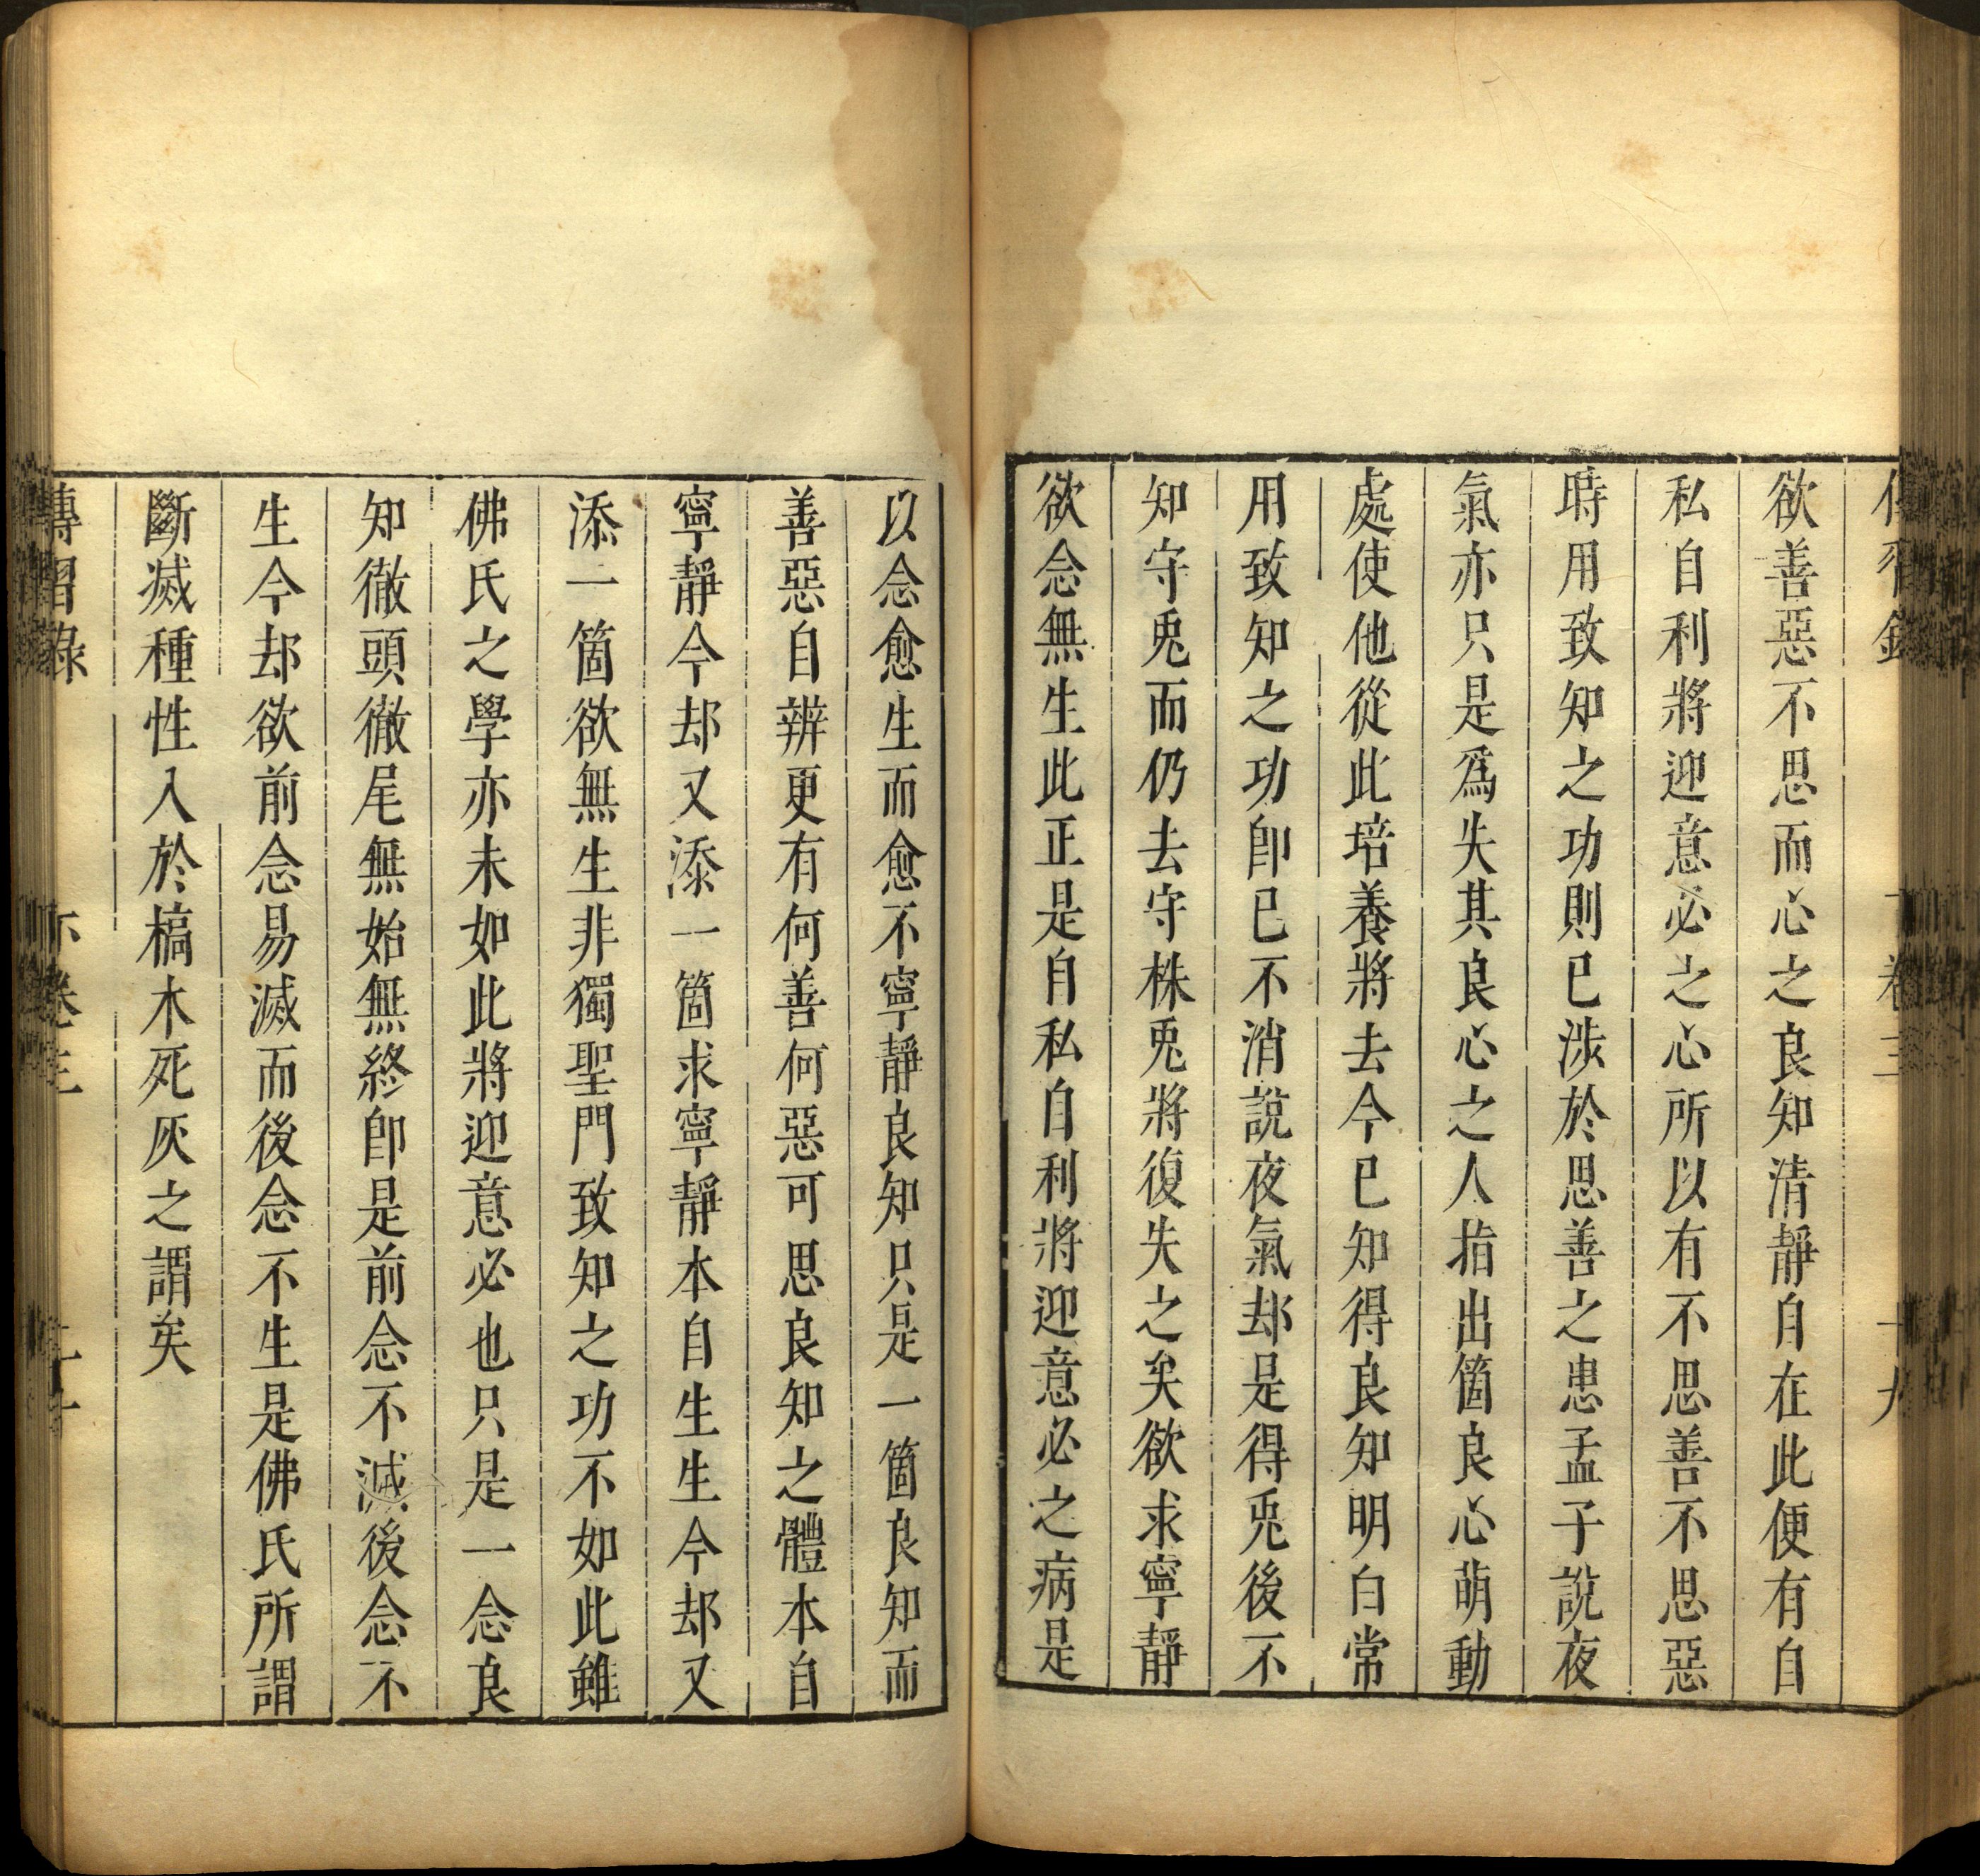 欲善惡不思而心之良知清靜自在此便有自
私自利將迎意必之心所以有不思善不思惡
時用致知之功則已涉於思善之患孟子說夜
氣亦只是爲失其良心之人指出箇良心萌動
處使他從此培養將去今已知得良知明白常
用致知之功卽已不消說夜氣却是得兎後不
知守兎而仍去守株兎將復失之矣欲求寧靜
欲念無生此正是自私自利將迎意必之病是
以念愈生而愈不寧靜良知只是一箇良知而
善惡自辨更有何善何惡可思良知之體本自
寧靜今却又添一箇求寧靜本自生生今却又
添一箇欲無生非獨聖門致知之功不如此雖
佛氏之學亦未如此將迎意必也只是一念良
知徹頭徹尾無始無終卽是前念不滅後念不
生今却欲前念易滅而後念不生是佛氏所謂
斷滅種性入於槁木死灰之謂矣
傳習錄 卷三 二十